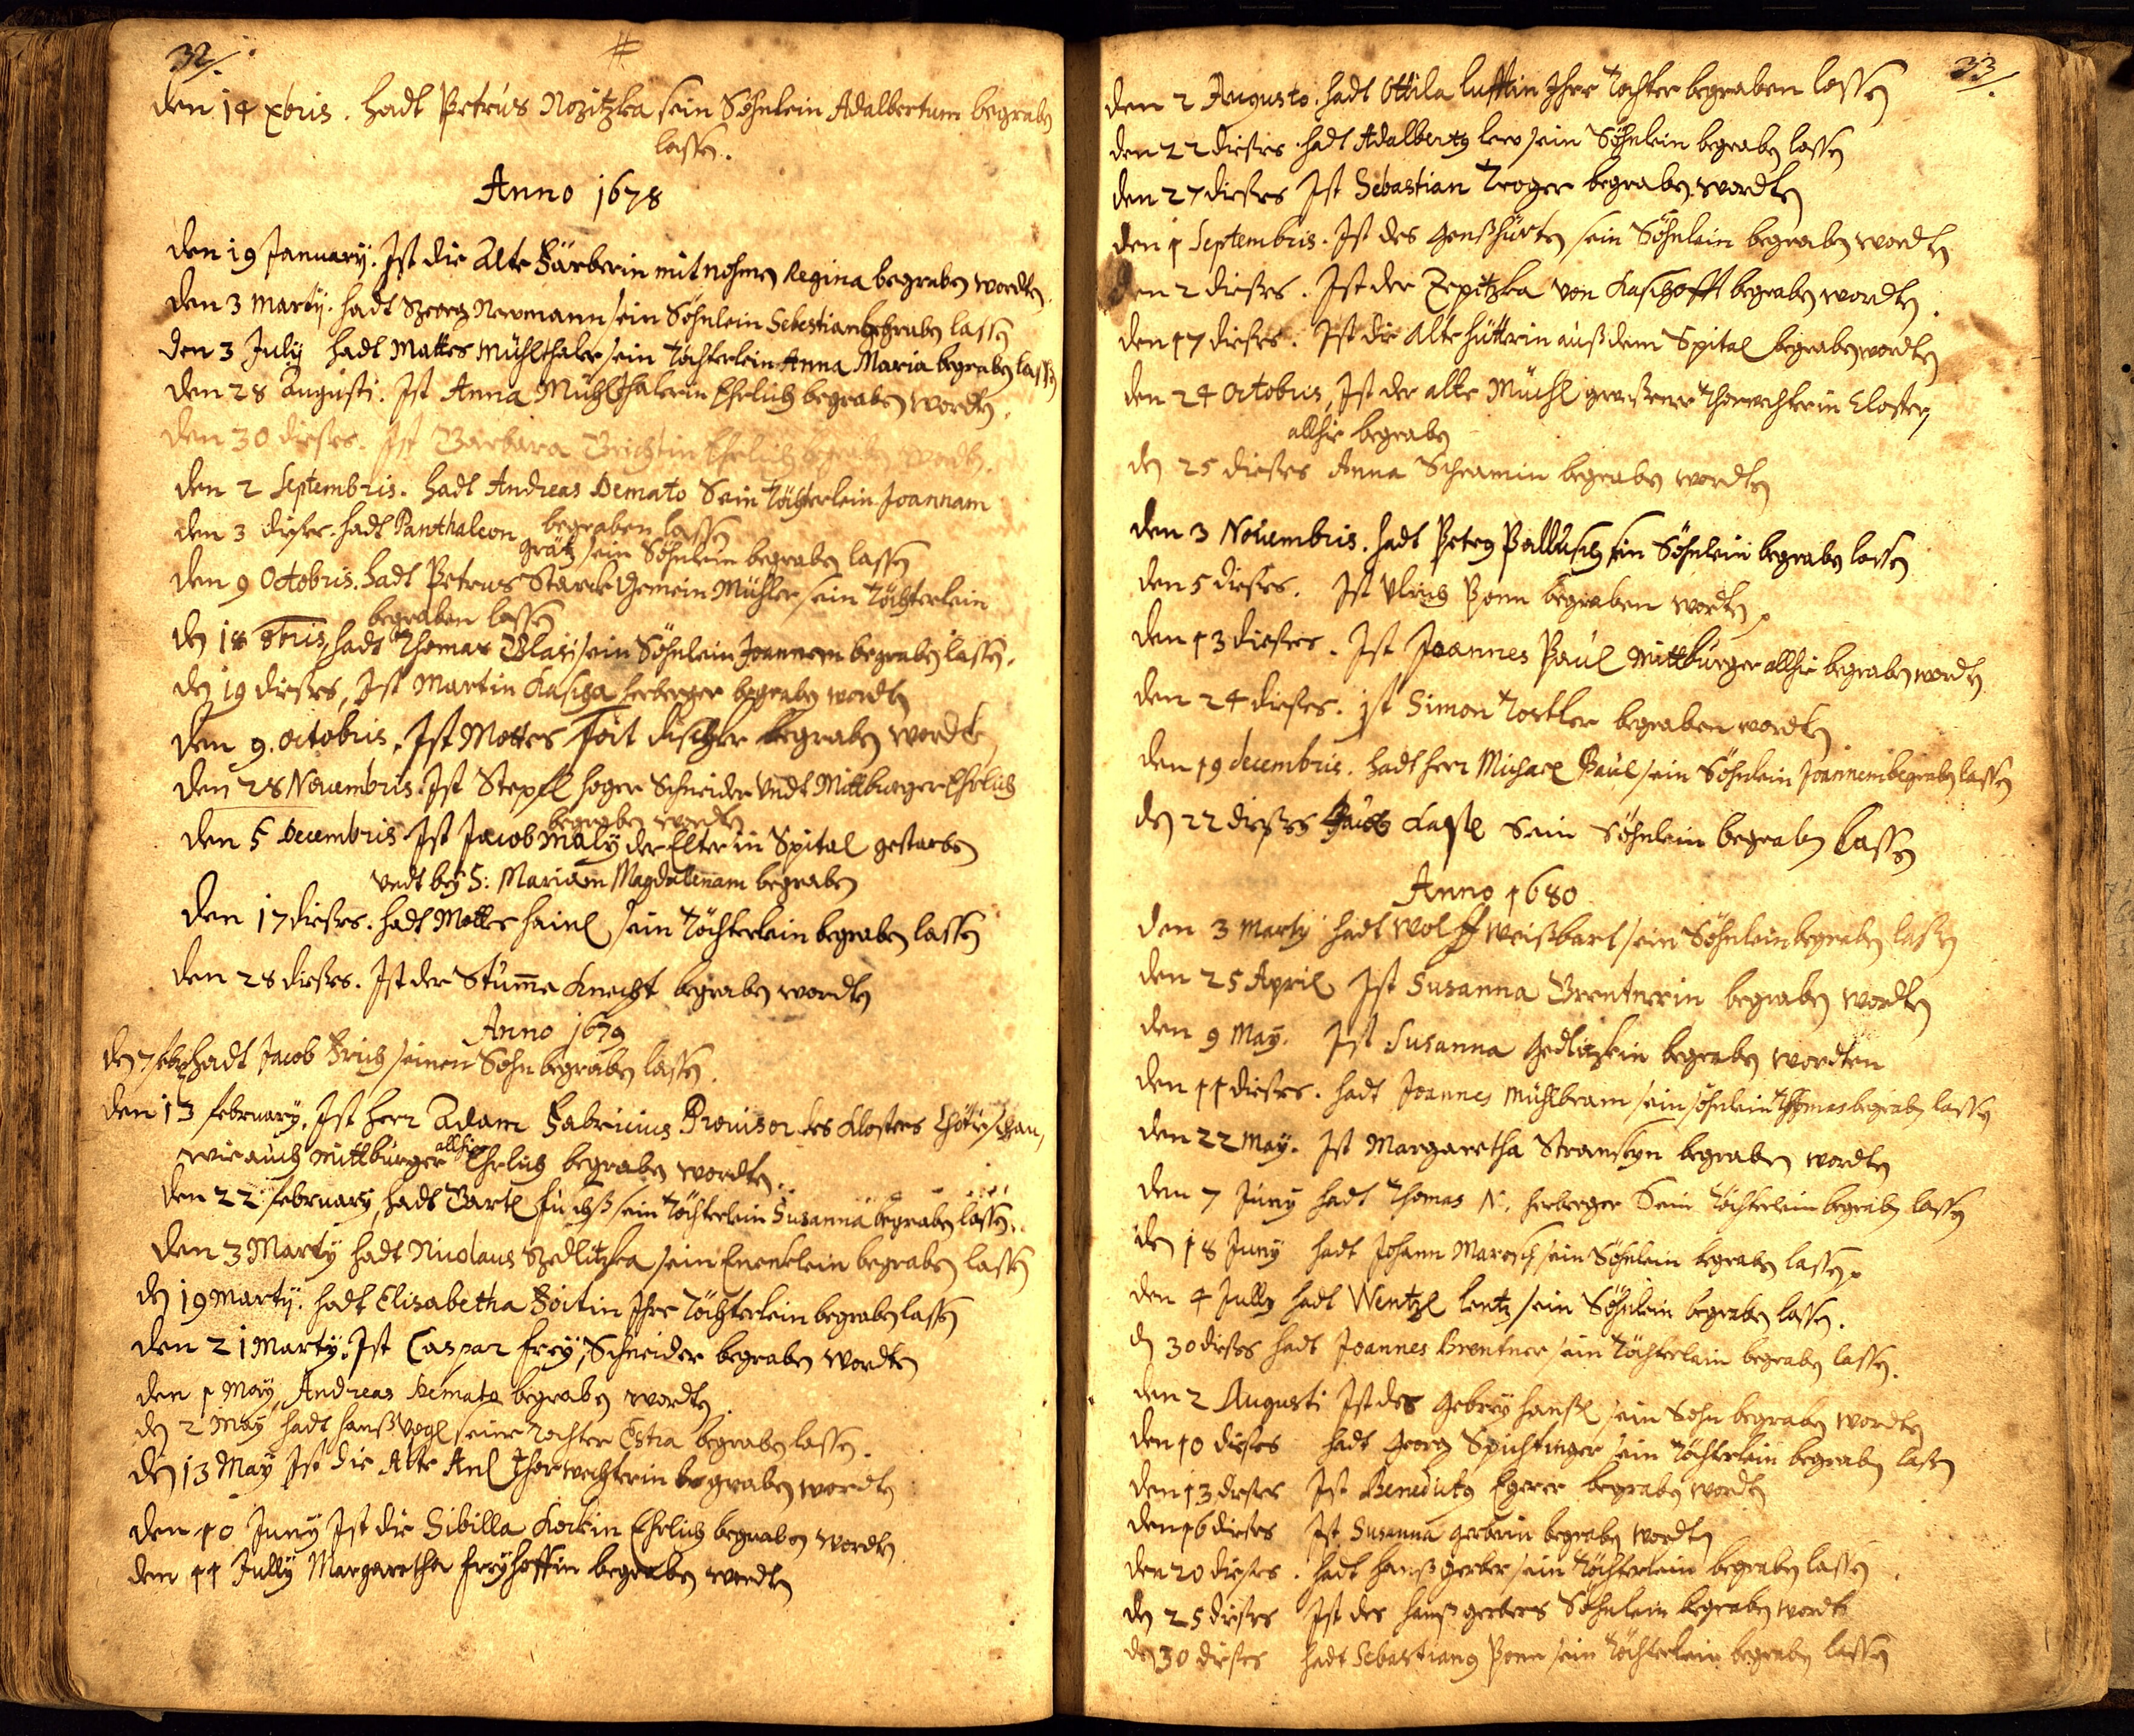 32/.
den 14 xbris. hadt Petrus Nozitzka sein Söhnlein Adalbertum begraben
lassen.
Anno 1678
den 19 January. Ist die Alte Färberin mit nohmen Regina begraben wordten.
den 3 Marty. hadt Neumann sein Söhnlein Sebestian begraben lassen
den 3 July hadt Mattes Mühlthaler sein Töchterlein Anna Maria begraben lassen
den 28 Augusti. Ist Anna Mühlthalerin Ehrlich begraben wordten.
den 30 dieses. Ist Barbara Brichtin Ehrlich begraben wordten.
den 2 Septembris. hadt Andreas Demato Sein Töchterlein Joannam
begraben lassen
den 3 dieses. hadt Panthaleon Grätz sein Söhnlein begraben lassen
den 9 Octobris. hadt Petrus Starck Gemein Mühler, sein Töchterlein
begraben lassen
den 18 8bris, hadt Thomas Blasi sein Söhnlein Joannem begraben lassen.
den 19 dieses, Ist Martin Kascha herberger begraben wordten
den 9. octobris. Ist Mottes Foit discher begraben wordten
den 28 Nouembris. Ist Stepfl hoger Schneider Undt Mittburger Ehrlich
begraben wordten
den 5 Decembris. Ist Jacob Maly der Elter in Spital gestarben
undt bey S: Mariam Magdalenam begraben
den 17 dieses. hadt Mottes hainl sein Töchterlein begraben lassen
den 28 dieses. Ist der Stum̄e Knecht begraben wordten
Anno 1679
den 7 febr hadt Jacob Frich seinen Sohn begraben lassen.
den 13 february. Ist herr Adam Fabricius Prouisor des Closters Chotieschau,
wie auch mittburger allhie Ehrlich begraben wordten.
den 22 february, hadt Bartl fuchß sein Töchterlein Susanna begraben lassen.
den 3 Marty hadt Nicolaus Szedlitzka sein Enenklein begraben lassen
den 19 Marty. hadt Elisabetha Foitin Ihre Töchterlein begraben lassen
den 21 Marty. Ist Caspar frey, Schneider begraben wordten
den 1 May, Andreas Demato begraben wordten.
den 2 May hadt hanß Vogl seine Tochter Estra begraben lassen.
den 13 May Ist die Alte Anl Thorwechterin begraben wordten
den 10 Juny Ist die Sibilla Kockin Ehrlich begraben wordten
den 11 Jully Margaretha freyhoffin begraben wordten
33/.
den 2 Augusto. hadt Ottila lufftin Ihre Tochter begraben lassen
den 22 dieses. hadt Adalbertg lew sein Söhnlein begraben lassen
den 27 dieses Ist Sebastian Troger begraben wordten
den 1 Septembris. Ist des Genßhürten sein Söhnlein begraben wordten
den 2 dieses. Ist der Zepitzka von Kaschofft begraben wordten.
den 17 dieses. Ist die Alte hüttrin auß dem Spital begraben wordten
den 24 Octobris, Ist der alte Müchl gewesener Thorwechter in Closter,
allhie begraben
den 25 dieses Anna Schramin begraben wordten
den 3 Nouembris. hadt Peterg Pallusch sein Söhnlein begraben lassen
den 5 dieses. Ist Ulrich Ponn begraben wordten.
den 13 dieses. Ist Joannes Paul Mittburger allhie begraben wordten
den 24 dieses. ist Simon Tostler begraben wordten
den 19 decembris. hadt herr Michael Paul sein Söhnlein Joannem begraben lassen
den 22 dieses Jacob Kastl Sein Söhnlein begraben lassen
Anno 1680
den 3 Marty hadt Wolff Weißbart sein Söhnlein begraben lassen
den 25 April Ist Susanna Brentnerin begraben wordten
den 9 May. Ist Susanna begraben wordten
den 11 dieses. hadt Joannes Mühlbram sein söhnlein Thomas begraben lassen
den 22 May. Ist Margaretha Stranskyn begraben wordten
den 7 Juny hadt Thomas N. herberger Sein Töchterlein begraben lassen
den 18 Juny hadt Johann Marosch sein Söhnlein begraben lassen.
den 4 Jully hadt Wentzl lentz sein Söhnlein begraben lassen.
den 30 dieses hadt Joannes Brentner sein Töchterlein begraben lassen.
den 2 Augusti Ist des hanßl sein Sohn begraben wordten
den 10 dieses hadt Georg Spichtinger sein Töchterlein begraben lassen
den 13 dieses Ist Benedictg Egerer begraben wordten
den 16 dieses Ist Susanna Gerberin begraben wordten
den 20 dieses. hadt hanß gerber sein Töchterlein begraben lassen.
den 25 dieses Ist des hanß gerbers Söhnlein begraben wordten
den 30 dieses hadt Sebastiang Ponn sein Töchterlein begraben lassen